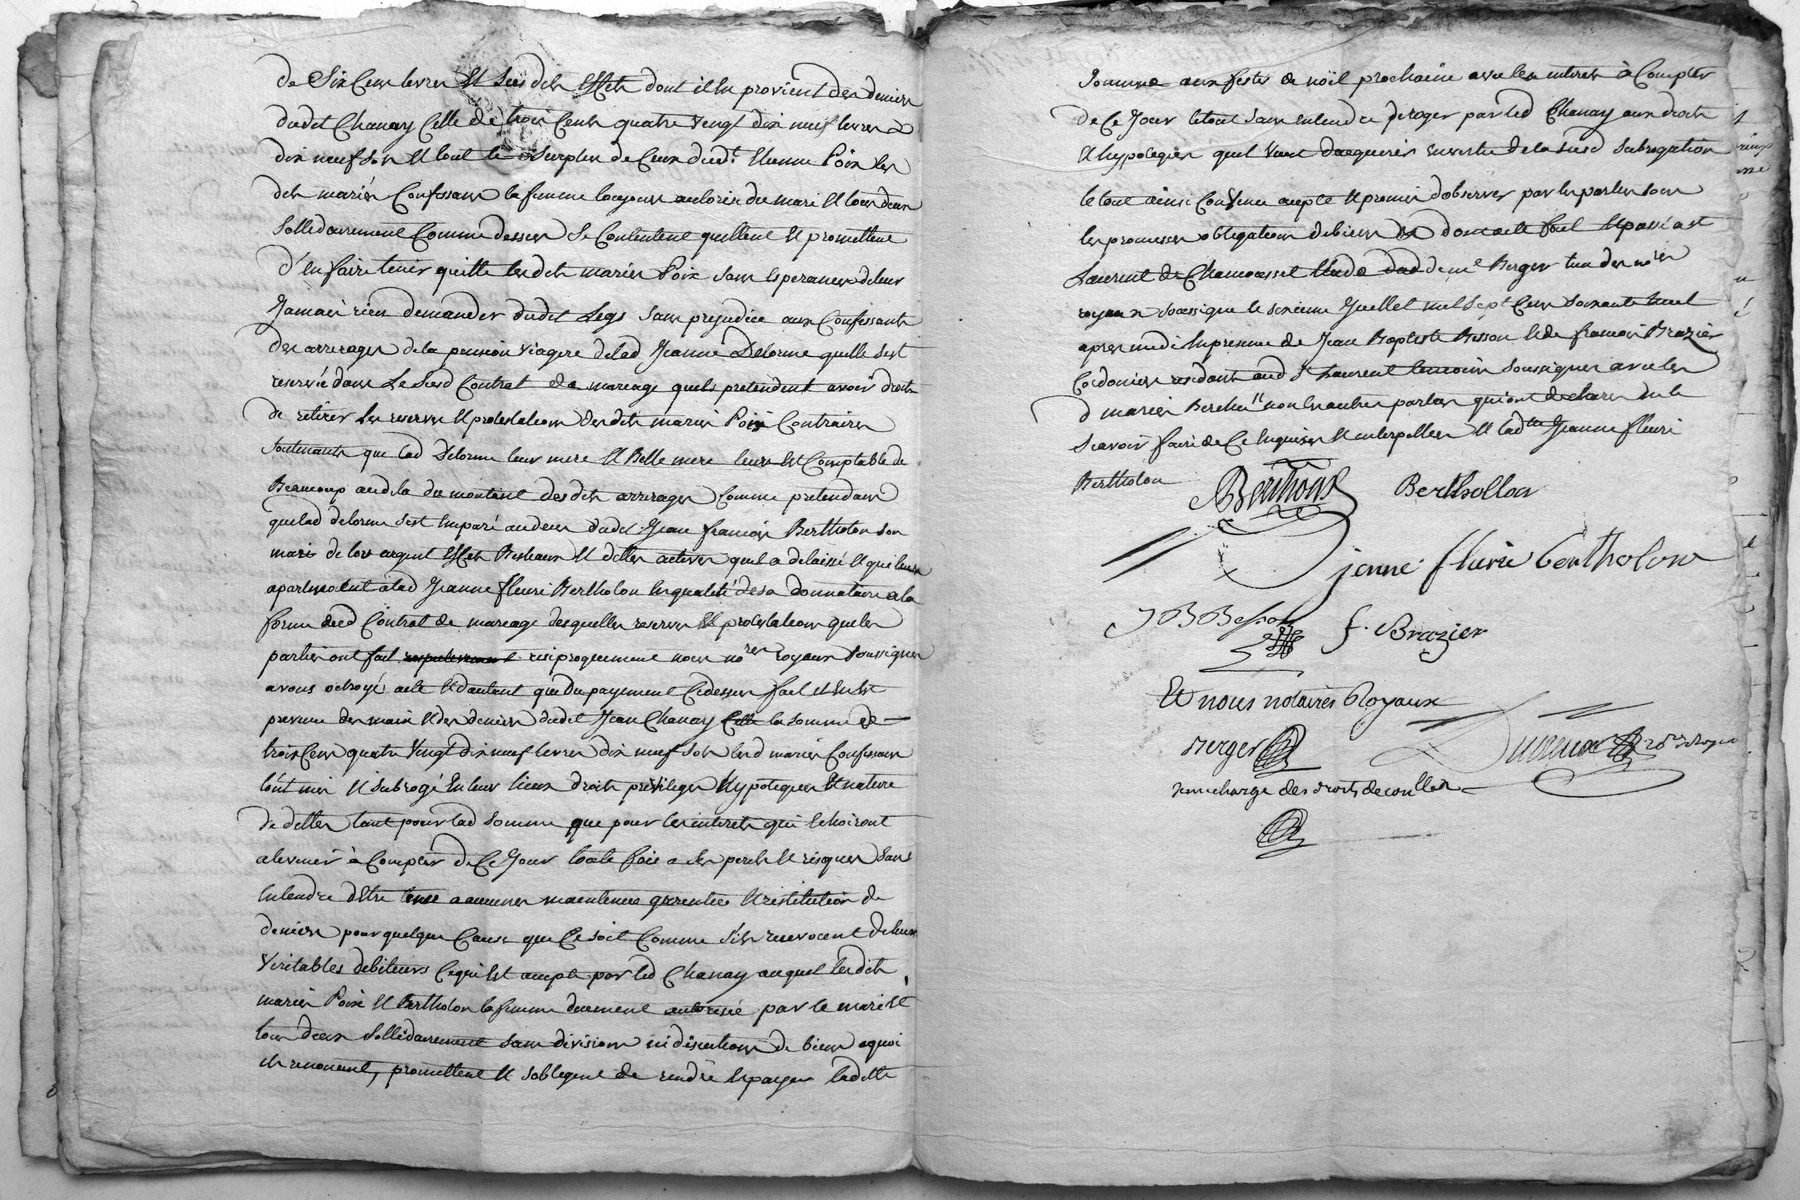 de Six Cens Livres et Susdits Effets dont il en provient des deniers
dudit Chanay Celle de trois Cents quatre Vingt dix neuf livres
dix neuf sols Et tout le Surplus de Ceux dud.t Etienne Poix les
dits mariés Confessans la femme toujours authorisée du mari Et tous deux
Sollidairement Comme dessus Se Contentent quittent Et promettent
d'En faire tenir quitte lesdits mariés Poix sans Esperances de leur
Jamais rien demander dudit Legs Sans prejudice aux Confessants
des arrerages de la pension viagere de lad Jeanne Delorme quelle s'est
reservée dans Le Susd Contrat de mariage quils pretendent avoir droit
de retirer Les reserves Et protestations desdits mariés Poix Contraires
Soutenants que lad Delorme leur mere Et Belle mere leurs Est Comptable de
Beaucoup audela du montant desdits arrerages Comme pretendans
que lad delorme s'est Emparé au deces dudit Jean francois Bertholon Son
mari de lors argent Effets Bestiaux Et dettes actives quil a delaissé Et que leurs
apartenoient a lad Jeanne fleuri Bertholon En qualité de sa donnataire a la
forme dud Contrat de mariage desquelles reserves Et protestations que les
parties ont fait respectivement resiproquement nous no.res royaux Soussignes
avons octroyé acte Et dautant que du payement Cydessus fait il en Est
provenu des mains Et des deniers dudit Jean Chanay Celle la Somme de
trois Cens quatre Vingt dix neuf livres dix neuf Sols lesd mariés Confessans
l'ont mis Et Subrogé En leur lieux droits privileges Hypoteques Et nature
de dettes tant pour lad Somme que pour les interets qui Echoiront
a l'avenir à Compter de Ce Jour toute fois a Ses perils Et risques Sans
Entendre d'Etre tenus a aucunes maintenues garenties Et restitution de
deniers pour quelque Cause que Ce Soit Comme s'ils recevoient de leurs
Veritables debiteurs Ce qui Est accepté par led Chanay auquel lesdits
mariés Poix Et Bertholon la femme duement autorisée par le mari Et
tous deux Sollidairement Sans division ni discution de biens a quoi
ils renoncent, promettent Et s'obligent de rendre Et payer ladite
Somme aux festes de noël prochaine avec les interets à Compter
de Ce Jour le tout Sans Entendre deroger par led Chanay aux droits
Et hypoteques quil Vient d'acquerir En vertu de la Susd Subrogation
le tout ainsi Convenu accepté Et promis d'observer par les parties Sous
les promesses obligations de biens Et dont acte fait Et passé a St
Laurent de Chamousset Etude dud de m.e Berger l'un des no.res
royaux Soussigné le Juellet mil Sept Cens Soixante huit
apres midi En presence de Jean Baptiste Besson Et de francois Brazier
Cordonier residants aud St Laurent temoins Soussignes avec les
d mariés non les autres parties qui ont declaré ne le
Scavoir faire de Ce Enquises Et interpellées Et lad.te Jeanne fleuri
Bertholon
Berthollon
jenne flurie bertholon
J B Besson
f. Brazier
Et nous notaires Royaux
Berger
no.re Royal
Sans charge des droits de controlle